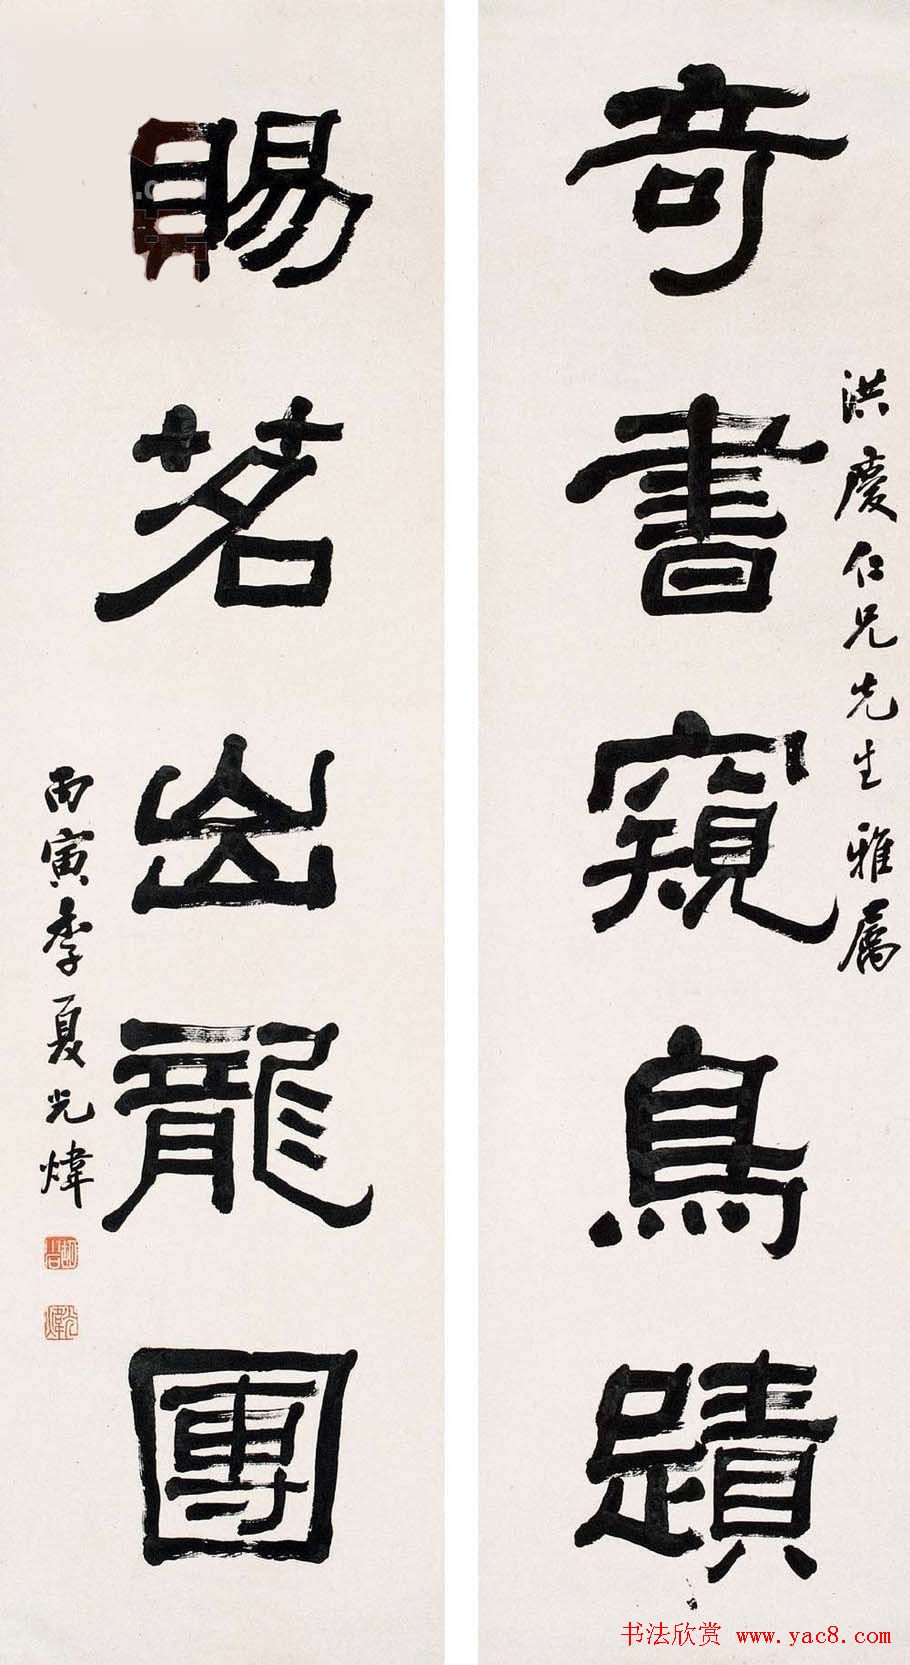 奇書窺鳥蹟
洪慶仁兄先生雅屬
賜茗出龍團
丙寅季夏光煒
胡小石
光煒
书法欣赏 www.yac8.com